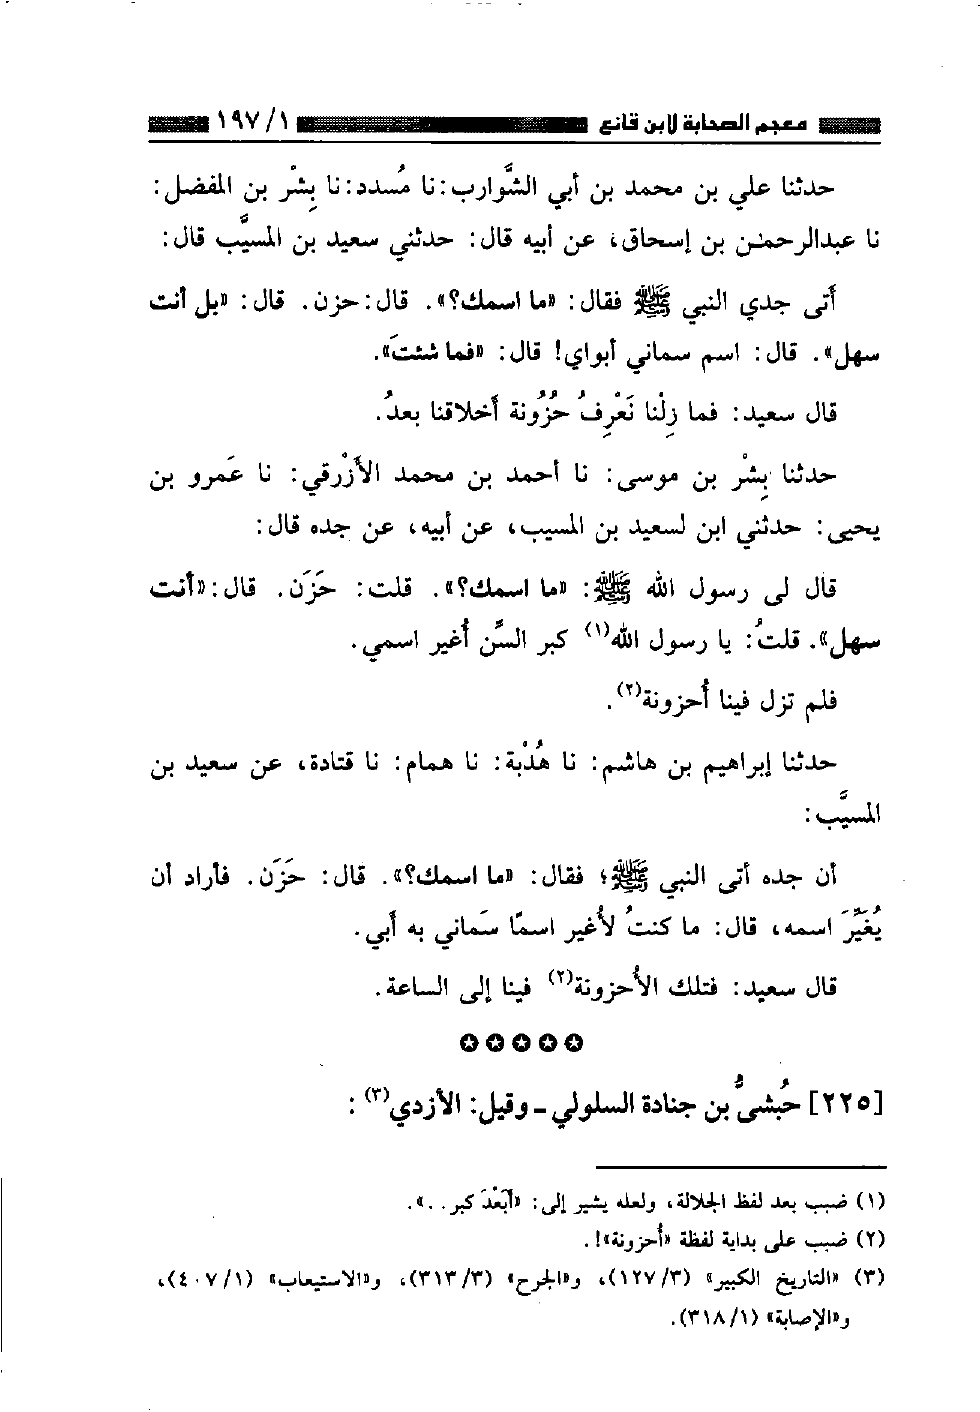 معجم الصحابة لابن قانع ١٩٧/١
حدثنا علي بن محمد بن أبي الشَّوارب: نا مُسدد: نا بِشْر بن المفضل:
نا عبدالرحمٰن بن إسحاق، عن أبيه قال: حدثني سعيد بن المسيَّب قال:
أَتى جدي النبي ﷺ فقال: «ما اسمك؟». قال: حزن. قال: «بل أنت
سهل». قال: اسم سماني أبواي! قال: «فما شئتَ».
قال سعيد: فما زِلْنا نَعْرِفُ حُزُونة أَخلاقنا بعدُ.
حدثنا بِشْر بن موسى: نا أحمد بن محمد الأَزْرقي: نا عَمرو بن
يحيى: حدثني ابن لسعيد بن المسيب، عن أبيه، عن جده قال:
قال لى رسول الله ﷺ: «ما اسمك؟». قلت: حَزَن. قال: «أنت
سهل». قلتُ: يا رسول الله(١) كبر السِّن أُغير اسمي.
فلم تزل فينا أُحزونة(٢).
حدثنا إبراهيم بن هاشم: نا هُدْبة: نا همام: نا قتادة، عن سعيد بن
المسيَّب:
أن جده أتى النبي ﷺ؛ فقال: «ما اسمك؟». قال: حَزَن. فأراد أن
يُغَيِّرَ اسمه، قال: ما كنتُ لأُغير اسمًا سَماني به أَبي.
قال سعيد: فتلك الأُحزونة(٢) فينا إلى الساعة.
✪✪✪✪✪
[٢٢٥] حُبشىُّ بن جنادة السلولي ـ وقيل: الأزدي(٣):
(١) ضبب بعد لفظ الجلالة، ولعله يشير إلى: «أَبَعْدَ كبر..».
(٢) ضبب على بداية لفظة «أُحزونة»!.
(٣) «التاريخ الكبير» (١٢٧/٣)، و«الجرح» (٣١٣/٣)، و«الاستيعاب» (٤٠٧/١)،
و«الإصابة» (٣١٨/١).